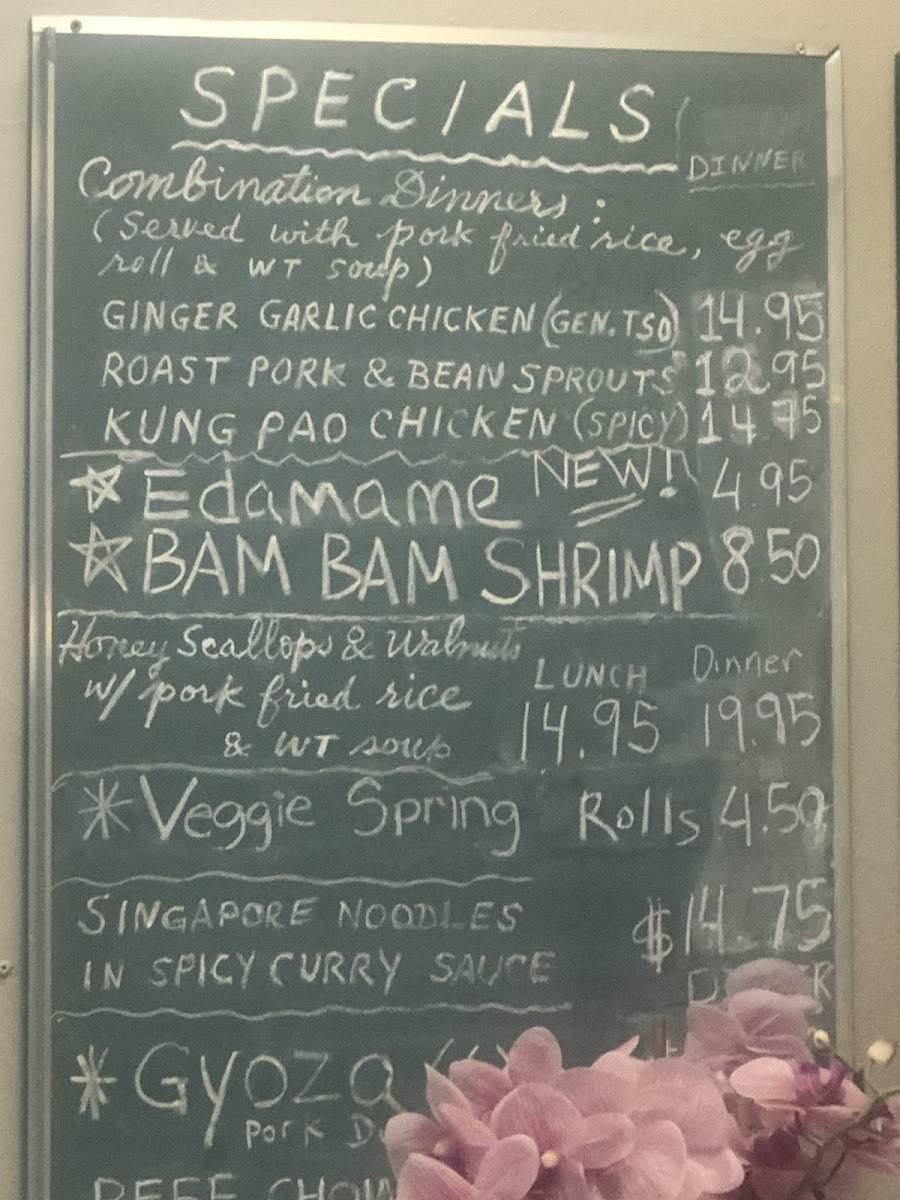 SPECIALS
DINNER
Combination Dinners:
(Served with pork fried rice, egg
roll & WT soup)
GINGER GARLIC CHICKEN (GEN. TSO) 14.95
ROAST PORK & BEAN SPROUTS 12.95
KUNG PAO CHICKEN (SPICY) 14.75
Edamame NEW! 4.95
BAM BAM SHRIMP 8.50
Honey Scallops & Walnuts
w/ pork fried rice
& WT soup
LUNCH Dinner
14.95 19.95
*Veggie Spring Rolls 4.50
SINGAPORE NOODLES
IN SPICY CURRY SAUCE
$14.75
*Gyoza
Pork
BEEF CHOW